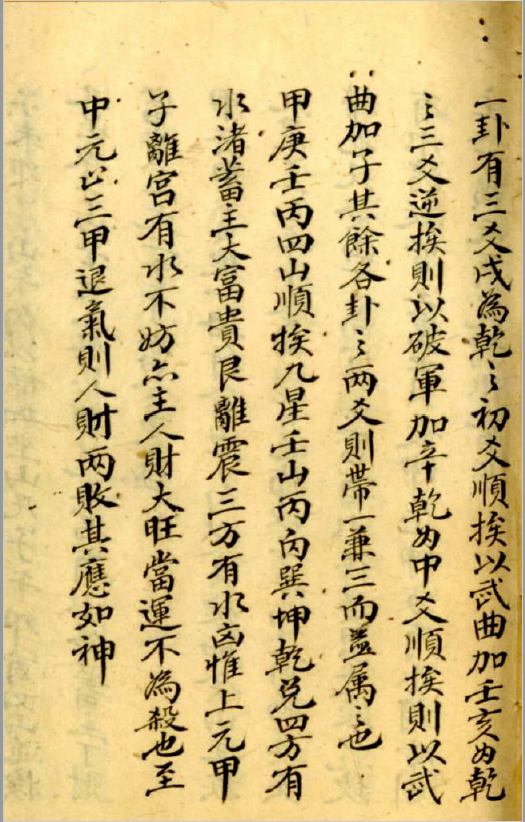 一卦有三爻戌為乾〻初爻順挨以武曲加壬亥为乾
〻三爻逆挨則以破軍加辛乾为中爻順挨則以武
曲加子其餘各卦〻两爻則帶一兼三而並属〻也
甲庚壬丙四山順挨九星壬山丙向巽坤乾兑四方有
水渚蓄主大富貴艮離震三方有水凶惟上元甲
子離宮有水不妨亦主人財大旺當運不為殺也至
中元三甲退氣則人財两敗其應如神